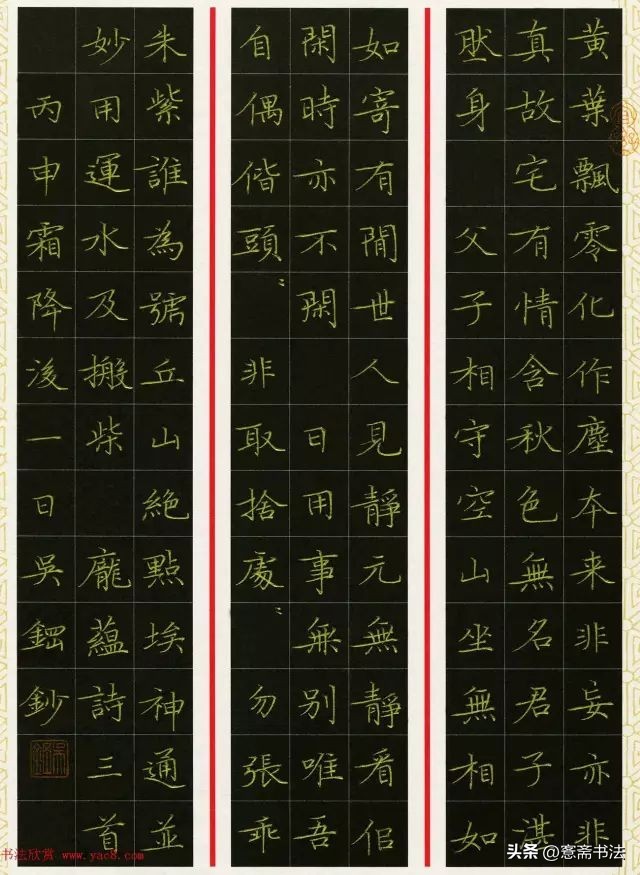 黃葉飄零化作塵本来非妄亦非
真故宅有情含秋色無名君子湛
肰身 父子相守空山坐無相如
如寄有閒世人見靜元無靜看佀
閑時亦不閑 日用事無别唯吾
自偶偕頭〻 非取捨處〻 勿張乖
朱紫誰為號丘山絶點埃神通並
妙用運水及搬柴 龐蘊詩三首
丙申霜降後一日吳鋼鈔
书法欣赏 www.yac8.com
头条 @斋书法